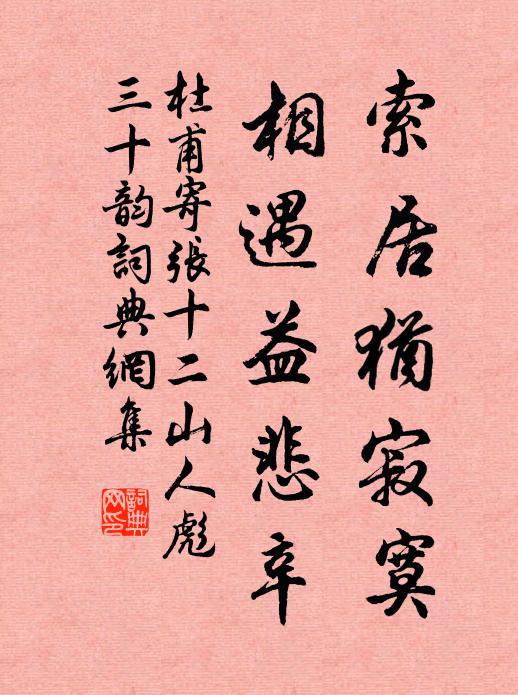 索居猶寂寞
相遇益悲辛
杜甫寄張十二山人彪
三十韵詞典網集
詞典网印